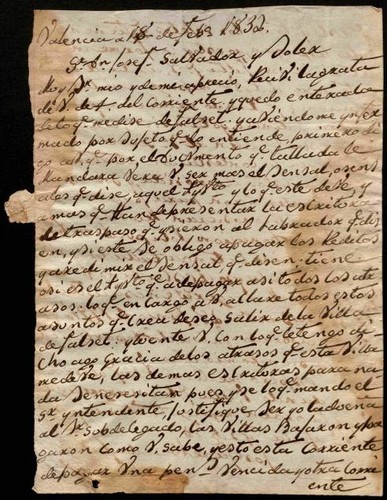 Valencia a 18 de Feb.o 1832.
Sr. Dn Josef Salvador y Doler
Muy Sr. mio y de mi aprecio, Recivi la grata
de V. de 4 del corriente, y quedo enterado
de lo q. me dise de falset. y abiendome ynfor
mado por sujeto q. lo entiende primero di
go a V. q. por el Documento q. tallada le
Mandara vera V. ser mas el Sensal, o sensa
los q. dise aquel y lo q. este deve, y
a mas q. Han de presentar la escritura
de traspaso q. ysieron al Labrador q. dis
en, y si este se obligo a pagar los Reditos
q. aredimir el Sensal, q. disen tiene
o si es el q. a de pagar asi todos los atr
asos. lo q. encargo a V. aclare todos estos
asuntos q. crea deseo salir de la Villa
de falset. y vente V. con lo q. le tengo di
cho ago Gracia de los atrasos q. esta Villa
me deve, las demas escrituras para na
da se nesesitan pues yo se lo q. mando el
Sr. yntendente, Justifique ser yo la dueña
al Sr. Subdelegado, las Villas Bajaron y pa
garon como V. sabe, y esto esta corriente
de pagar una pen.n Vencida y otra Corri
ente